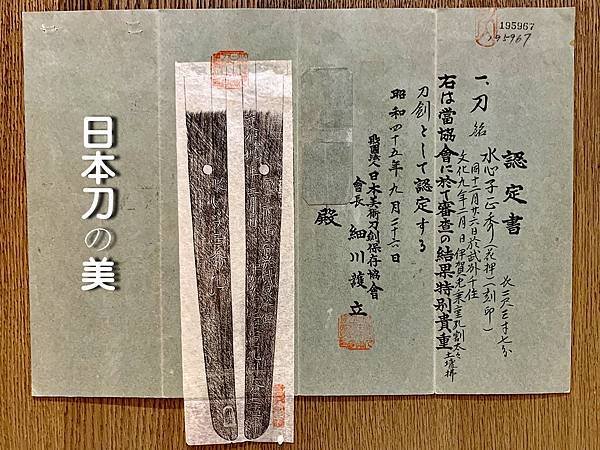 195967
195967
認定書
一、刀 銘 水心子正秀(花押)(刻印) 長二尺三寸七分
文化九年二月日伊賀 乗重 乳割太々土壇拂
同十一月廿六日於武州千住
右は當協會に於て審査の結果特別貴重
刀劍として認定する
昭和四十五年九月二十六日
財團法人日本美術刀劍保存協會
會長 細川護立
殿
日本刀の美